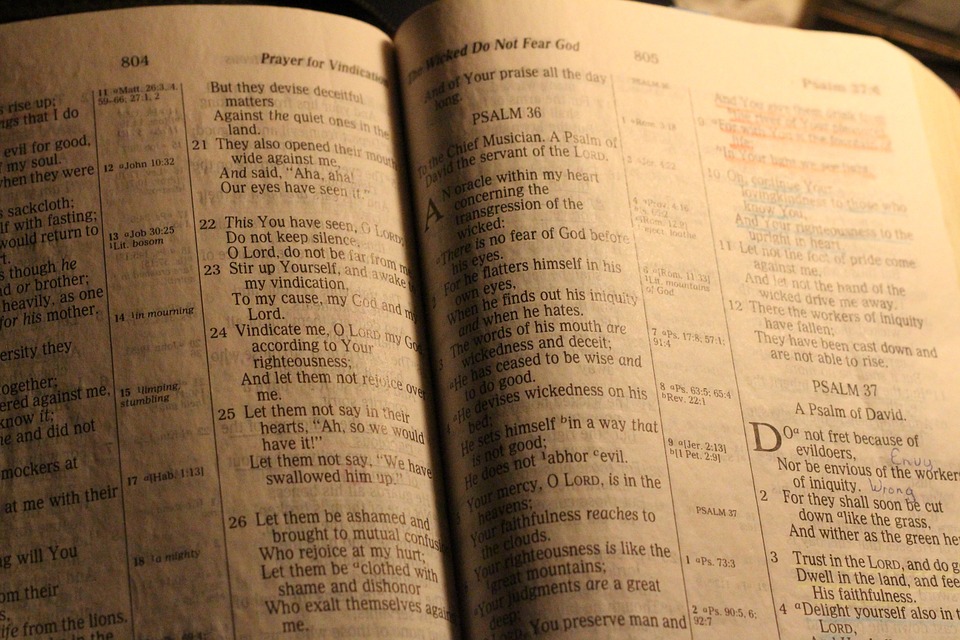 804
Prayer for Vindication
rise up;
things that I do
evil for good,
my soul.
when they were
sackcloth;
with fasting;
would return to
as though he
or brother;
heavily, as one
for his mother.
together;
against me,
know it;
and did not
mockers at
at me with their
will You
from their
life from the lions.
in the
11 a Matt. 26:3, 4,
59–66; 27:1, 2
12 a John 10:32
13 a Job 30:25
1 Lit. bosom
14 1 in mourning
15 1 limping,
stumbling
17 a [Hab. 1:13]
18 1 a mighty
But they devise deceitful
matters
Against the quiet ones in the
land.
21 They also opened their mouth
wide against me,
And said, "Aha, aha!
Our eyes have seen it."
22 This You have seen, O LORD;
Do not keep silence.
O Lord, do not be far from me.
23 Stir up Yourself, and awake to
my vindication,
To my cause, my God and my
Lord.
24 Vindicate me, O LORD my God,
according to Your
righteousness;
And let them not rejoice over
me.
25 Let them not say in their
hearts, "Ah, so we would
have it!"
Let them not say, "We have
swallowed him up."
26 Let them be ashamed and
brought to mutual confusion
Who rejoice at my hurt;
Let them be a clothed with
shame and dishonor
Who exalt themselves against
me.
The Wicked Do Not Fear God
805
Psalm 37:4
And of Your praise all the day
long.
PSALM 36
To the Chief Musician. A Psalm of
David the servant of the LORD.
AN oracle within my heart
concerning the
transgression of the
wicked:
There is no fear of God before
his eyes.
For he flatters himself in his
own eyes,
When he finds out his iniquity
and when he hates.
The words of his mouth are
wickedness and deceit;
He has ceased to be wise and
to do good.
He devises wickedness on his
bed;
He sets himself b in a way that
is not good;
He does not 1 abhor c evil.
Your mercy, O LORD, is in the
heavens;
Your faithfulness reaches to
the clouds.
Your righteousness is like the
great mountains;
Your judgments are a great
deep;
LORD, You preserve man and
7 a Ps. 17:8; 57:1;
91:4
8 a Ps. 63:5; 65:4
b Rev. 22:1
9 a [Jer. 2:13]
b [1 Pet. 2:9]
PSALM 37
1 a Ps. 73:3
2 a Ps. 90:5, 6;
92:7
9
"In Your light we see light.
10 Oh, continue Your
lovingkindness to those who
know You,
And Your righteousness to the
upright in heart.
11 Let not the foot of pride come
against me,
And let not the hand of the
wicked drive me away.
12 There the workers of iniquity
have fallen;
They have been cast down and
are not able to rise.
PSALM 37
A Psalm of David.
DO a not fret because of
evildoers,
Envy
Nor be envious of the workers
of iniquity.
Wrong
2 For they shall soon be cut
down a like the grass,
And wither as the green
3 Trust in the LORD, and do
Dwell in the land, and
His faithfulness.
4 a Delight yourself also in
LORD,